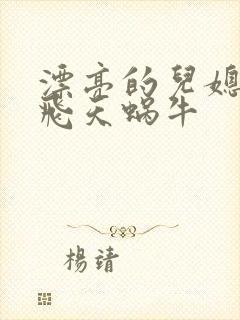 漂亮的兒媳
飛天蝸牛
楊靖